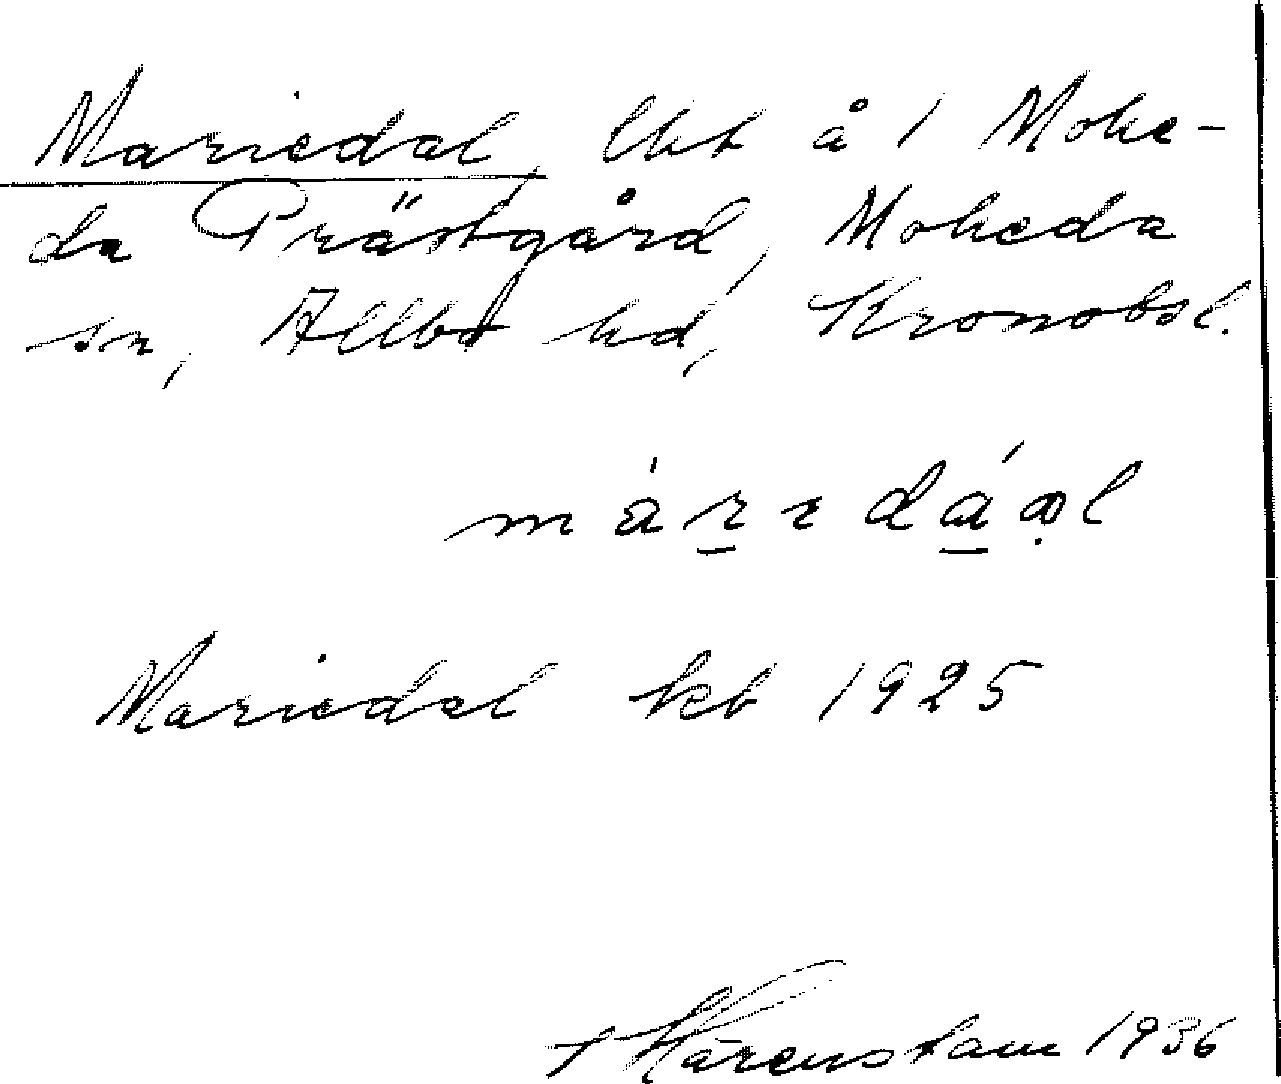 Mariedal, lht å 1 Mohe-
da Prästgård, Moheda
sn, Allbo hd, Kronobsl.
Mariedal kb 1925
Härenstam 1936